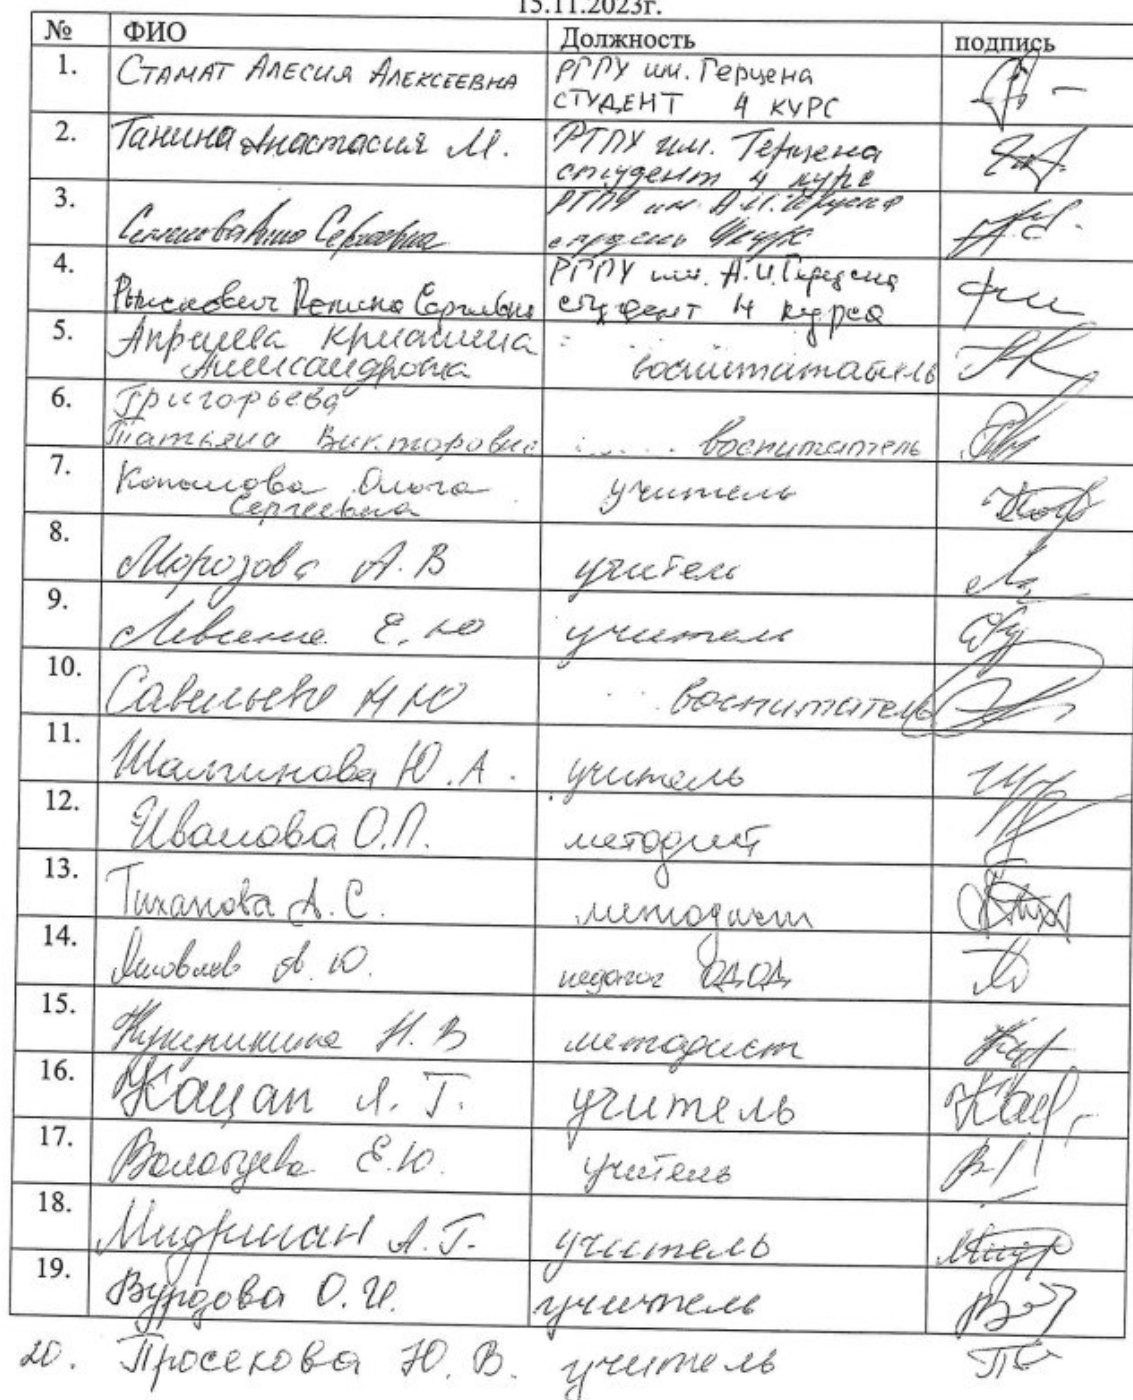 15.11.2023г.
№ ФИО Должность подпись
1. СТАМАТ АЛЕСИЯ АЛЕКСЕЕВНА РГПУ им. Герцена
СТУДЕНТ 4 КУРС
2. Танина Анастасия М. РГПУ им. Герцена
студент 4 курс
3. РГПУ им. А.И. Герцена
Сергеевна студент 4 курс
4. РГПУ им. А.И. Герцена
Полина Сергеевна студент 4 курса
5. Апрелева Кристина
Александровна воспитатель
6. Григорьева
Татьяна Викторовна воспитатель
7. Копылова Ольга учитель
Сергеевна
8. Морозова А.В учитель
9. Е.Ю учитель
10. Савельева Н Ю воспитатель
11. Ю.А. учитель
12. Иванова О.П. методист
13. Тиханова А.С. методист
14. Яковлев А.Ю. педагог ОДОД
15. Н.В методист
16. Кацан А.Г. учитель
17. Е.Ю. учитель
18. А.Г. учитель
19. Бурдова О.И. учитель
20. Просекова Ю.В. учитель